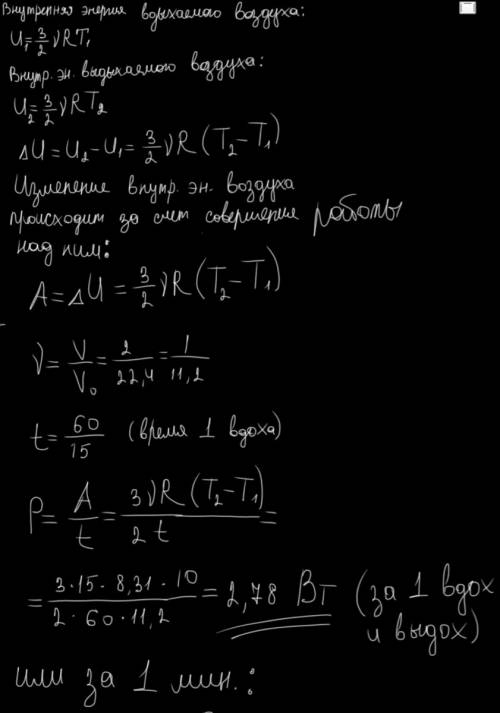 Внутренняя энергия вдыхаемого воздуха:
U₁=3/2 νRT₁
Внутр. эн. выдыхаемого воздуха:
U₂=3/2 νRT₂
ΔU=U₂-U₁=3/2 νR(T₂-T₁)
Изменение внутр. эн. воздуха
происходит за счет совершение работы
над ним:
A=ΔU=3/2 νR(T₂-T₁)
ν=V/V₀=2/22,4=1/11,2
t=60/15 (время 1 вдоха)
P=A/t=3νR(T₂-T₁)/2t=
=3·15·8,31·10/2·60·11,2=2,78 Вт (за 1 вдох
и выдох)
или за 1 мин.: